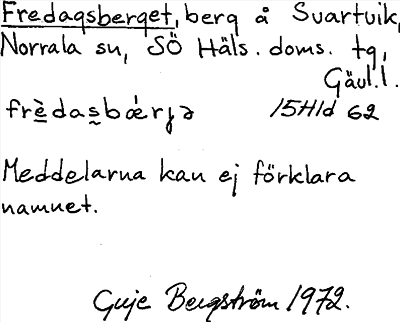 Fredagsberget, berg å Svartvik,
Norrala sn, SÖ Häls. doms. tg,
Gävl.l.
frè̱daṣbǽrɟə 15H1d 62
Meddelarna kan ej förklara
namnet.
Guje Bergström 1972.